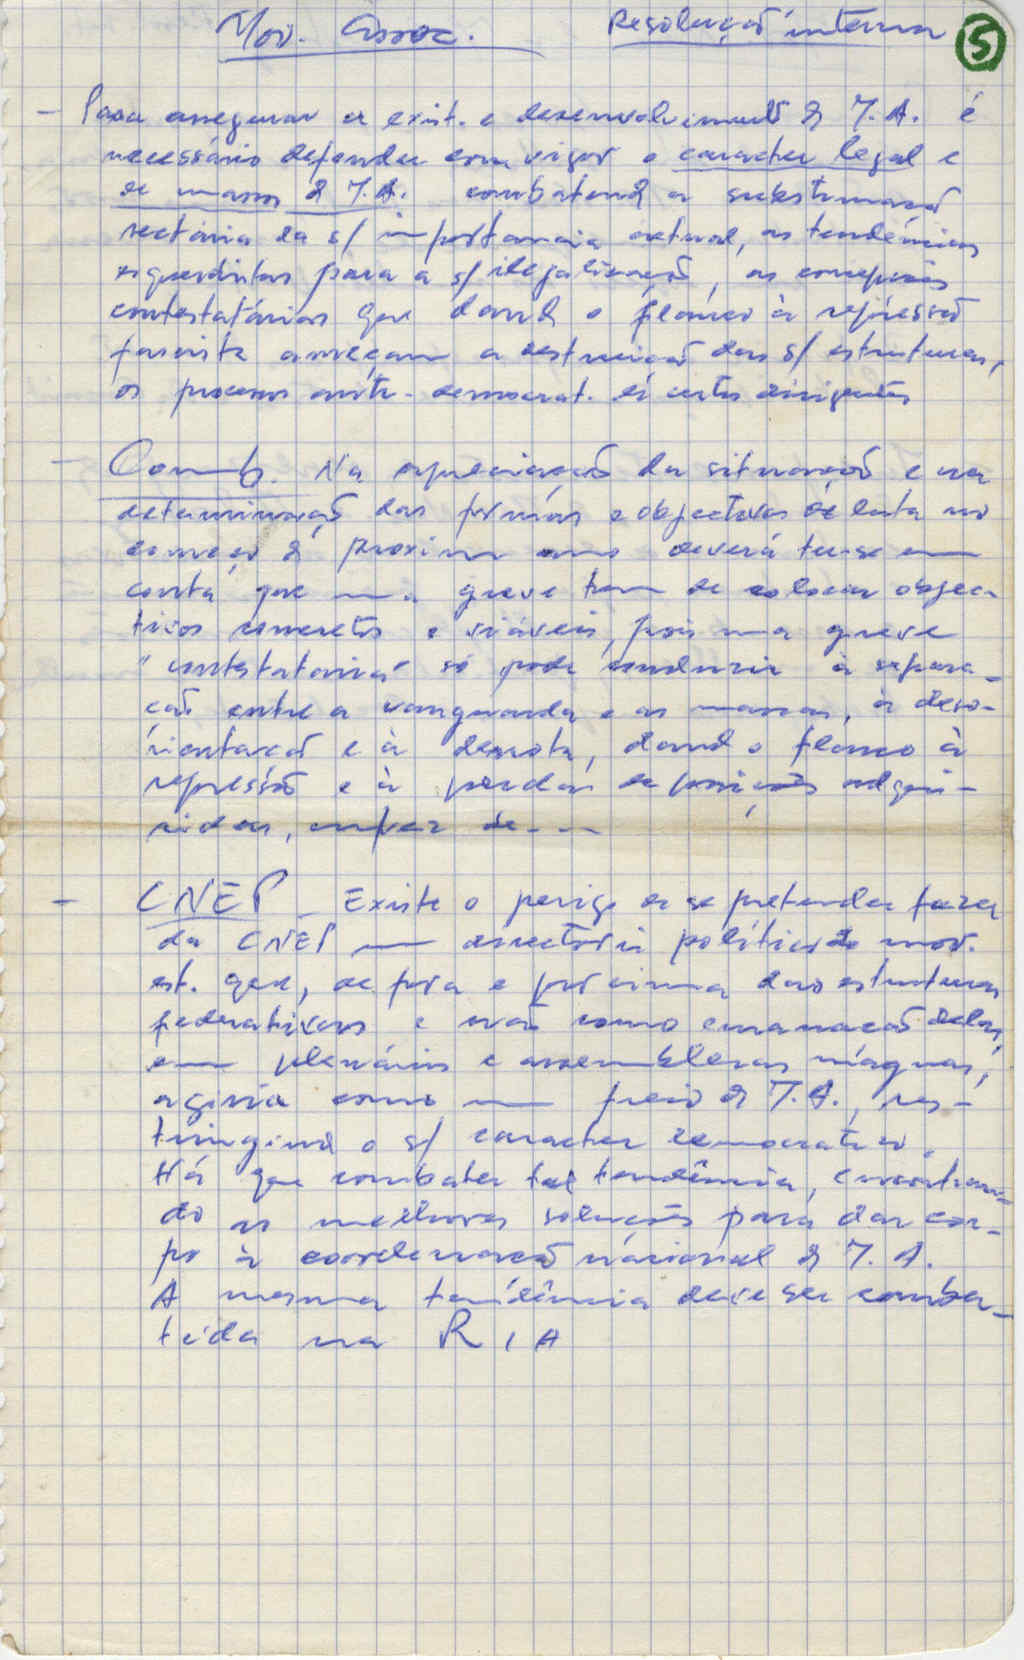 Mov. Assoc. Resolução interna 5
- Para assegurar a exist. e desenvolvimento do M.A. é
necessário defender com vigor o caracter legal e
de massas do M.A. combatendo a subestimação
sectária da s/ importancia actual, as tendências
esquerdistas para a s/ ilegalização, as concepções
contestatárias que dando o flanco à repressão
fascista ameaçam a destruição das s/ estruturas,
os processos anti-democrat. de certos dirigentes
- Coimb. Na apreciação da situação e na
determinação das formas e objectivos de luta no
começo do proximo ano deverá ter-se em
conta que uma greve tem de colocar objec-
tivos concretos e viáveis, pois uma greve
"contestatária" só pode conduzir à separa-
ção entre a vanguarda e as massas, à deso-
rientação e à derrota, dando o flanco à
repressão e à perda de posições adqui-
ridas, em vez de - - -
- CNEP - Existe o perigo de se pretender fazer
da CNEP um directório político do mov.
est. que, de fora e por cima das estruturas
federativas e não como emanação delas,
em plenários e assembleias magnas,
agiria como um freio do M.A., res-
tringindo o s/ caracter democratico.
Há que combater tal tendência, encontran-
do as melhores soluções para dar cor-
po à coordenação nacional do M.A.
A mesma tendência deve ser comba-
tida na R I A